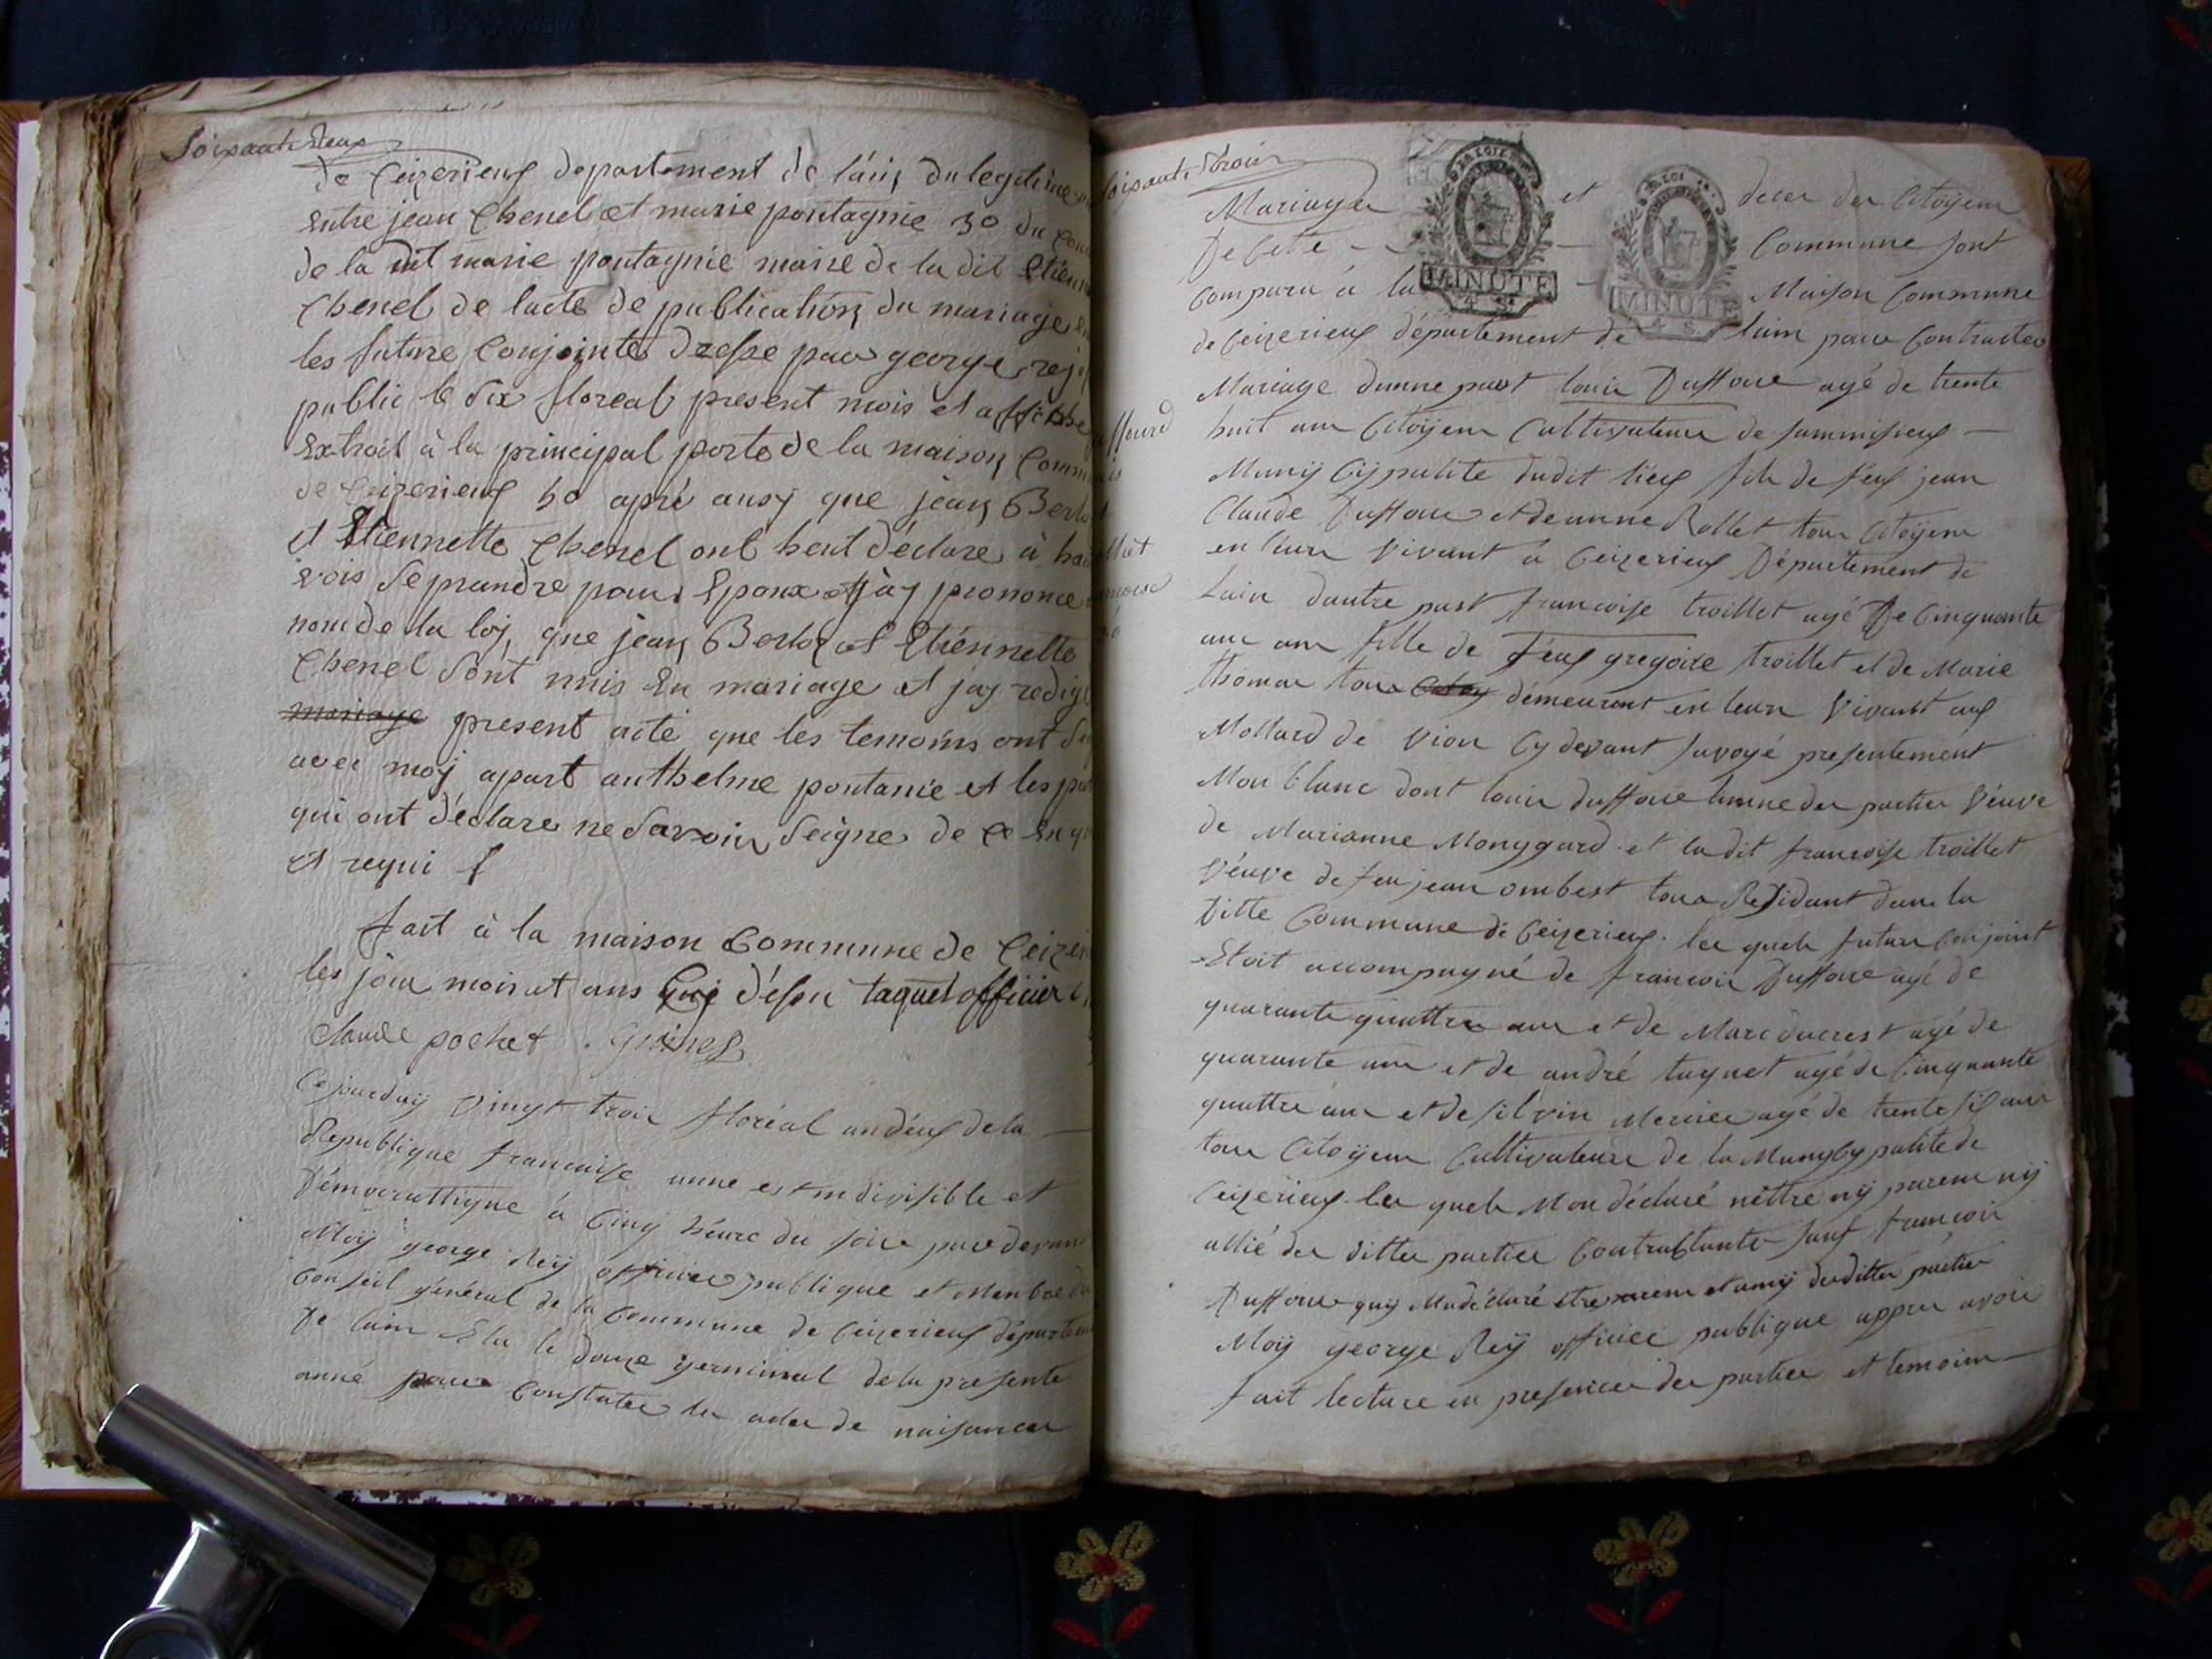 Soixante Deux
de Ceizerieux departement de l'ain du legetime
entre jean Chenel et marie pontagnie 3o du
de la dit marie pontagnie maire de la dit Etienn
Chenel de lacte de publication du mariage
les future Conjointe dresse par george rey
public le dix floreal present mois et affiche
Extrait à la principal porte de la maison Comm
de Ceizerieux 5o apré ausy que jean Berlo
et Etiennette Chenel ont heut déclare à hau
vois se prandre pour Epoux et jay prononce
nom de la loy que jean Berlo et Etiennette
Chenel sont unis En mariage et jay redige
mariage present acte que les temoins ont
avec moy apart anthelme pontanie et les par
qui ont déclare ne savoir seigne de ce
et requi
fait à la maison Commune de Ceizer
les jour mois et ans que désu taquet officier
Claude pochet
Ce jourduy vingt troir floréal an deux de la
Republique francoise unne est indivisible et
Démocrattique à Cinq héure du soire par devan
Moÿ george Reÿ officier publique et Menbre du
Conseil général de la Commune de Ceizerieux départem
De lain Elu le douze germinal de la présente
anné pour Constater les actes de naisances
Soixante Troir
Mariages et deces des Citoÿens
De Cete Commune sont
Comparu à la Maison Commune
MINUTE
4 S.
MINUTE
4 S.
de Ceizerieux département de lain pour Contracter
Mariage dunne part louis Duffour agé de trente
huit ans Citoÿens Cultivateur de
Munÿ Cÿpalite dudit lieux fils de féux jean
Claude Duffour et de anne Rollet tous Citoÿens
en leurs vivant à Ceizerieux Département de
Lain dautre part francoise troillet agé De Cinquante
ans fille de féux gregoire troillet et de Marie
thomas tous démeurant en leurs vivant aux
Mollard de vion Cy devant savoyé présentement
Mon blanc dont louis duffour lunne des parties véuve
de Marianne Monygard et la dit francoise troillet
véuve de feu jean ombest tous Residant dans la
ditte Commune de Ceizerieux les quels futurs Conjoint
Etoit accompagné de francois Duffour agé de
quarante quattre ans et de Marc ducrest agé de
quarante ans et de andré taquet agé de Cinquante
quattre ans et de silvin Mercier agé de trente six ans
tous Citoÿens Cultivateurs de la Munycypalite de
Ceizerieux les quels Mon déclaré nettre nÿ parens nÿ
allié des dittes parties Contractante sauf francois
Duffour quÿ Ma déclaré etre parens et amÿ desdittes parties
Moÿ george Reÿ officier publique appres avoir
fait lecture en presences des parties et temoins